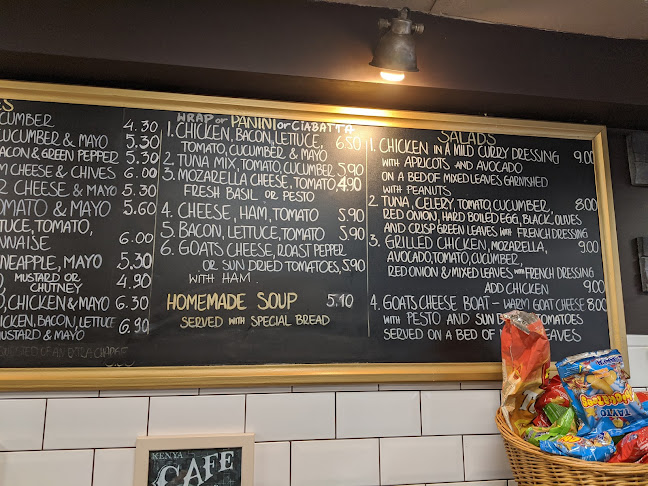 ES
CUCUMBER 4.30
CUCUMBER & MAYO 5.30
BACON & GREEN PEPPER 5.30
CHEESE & CHIVES 6.00
CHEESE & MAYO 5.30
TOMATO & MAYO 5.60
LETTUCE, TOMATO,
6.00
PINEAPPLE, MAYO 5.30
MUSTARD OR 4.90
CHUTNEY
CHICKEN & MAYO 6.30
CHICKEN, BACON, LETTUCE
MUSTARD & MAYO 6.90
WRAP or PANINI or CIABATTA
1. CHICKEN, BACON, LETTUCE, 6.50
TOMATO, CUCUMBER & MAYO
2. TUNA MIX, TOMATO, CUCUMBER 5.90
3. MOZARELLA CHEESE, TOMATO, 4.90
FRESH BASIL OR PESTO
4. CHEESE, HAM, TOMATO 5.90
5. BACON, LETTUCE, TOMATO 5.90
6. GOATS CHEESE, ROAST PEPPER
OR SUN DRIED TOMATOES, 5.90
WITH HAM
HOMEMADE SOUP 5.10
SERVED WITH SPECIAL BREAD
SALADS
1. CHICKEN IN A MILD CURRY DRESSING 9.00
WITH APRICOTS AND AVOCADO
ON A BED OF MIXED LEAVES GARNISHED
WITH PEANUTS
2. TUNA, CELERY, TOMATO, CUCUMBER, 8.00
RED ONION, HARD BOILED EGG, BLACK OLIVES
AND CRISP GREEN LEAVES WITH FRENCH DRESSING
3. GRILLED CHICKEN, MOZARELLA, 9.00
AVOCADO, TOMATO, CUCUMBER,
RED ONION & MIXED LEAVES WITH FRENCH DRESSING
ADD CHICKEN 9.00
4. GOATS CHEESE BOAT - WARM GOAT CHEESE 8.00
WITH PESTO AND SUN TOMATOES
SERVED ON A BED OF LEAVES
KENYA
CAFE
TAYTO